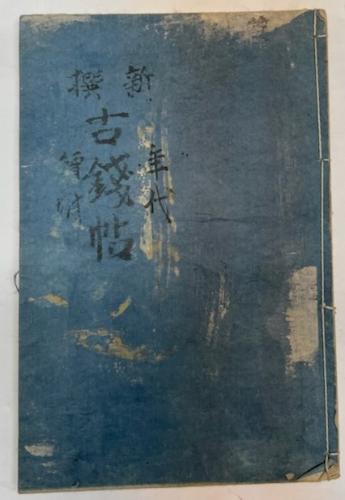 新撰
年代
古錢帖